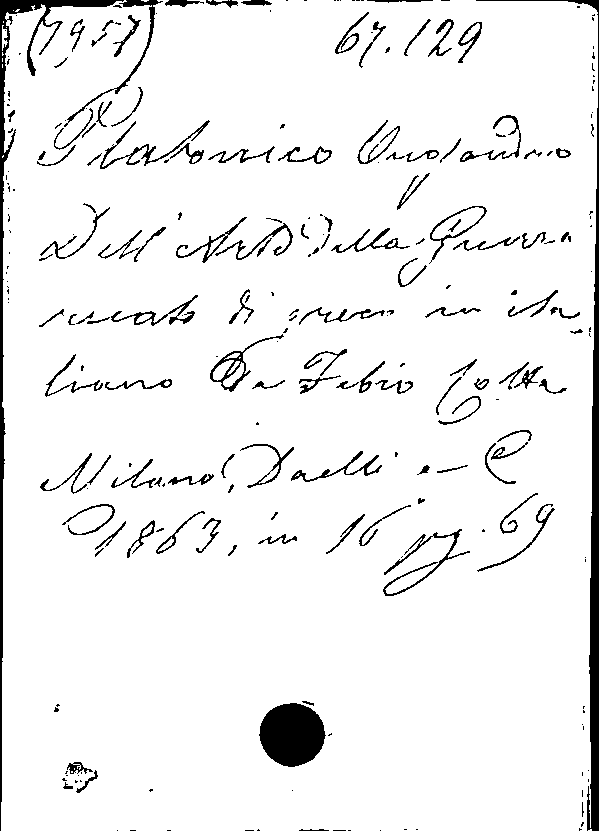 (7957) 67.129
Platonico Onosandro
Dell'Arte della Guerra
recato di greco in ita-
liano Da Fabio Cotta
Milano, Daelli e C
1863, in 16° pg. 69